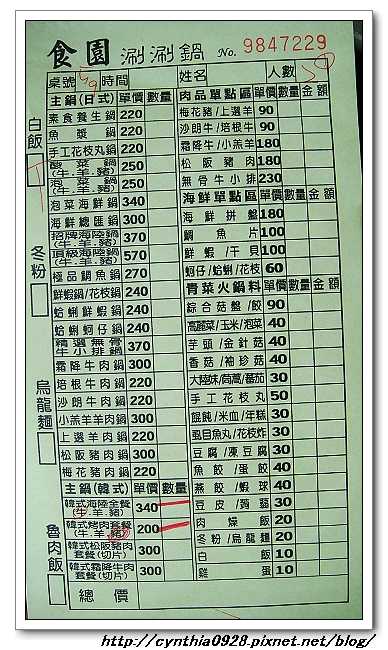 食園 涮涮鍋 No. 9847229
桌號 59 時間 姓名 人數
主鍋(日式) 單價 數量
素食養生鍋 220
魚漿鍋 220
手工花枝丸鍋 220
酸菜鍋(牛.羊.豬) 250
泡菜鍋(牛.羊.豬) 250
泡菜海鮮鍋 340
海鮮總匯鍋 300
招牌海陸鍋(牛.羊.豬) 370
頂級海陸鍋(牛.羊.豬) 570
極品鯛魚鍋 270
鮮蝦鍋/花枝鍋 240
蛤蜊鮮蝦鍋 240
蛤蜊蚵仔鍋 240
精選無骨牛小排鍋 370
霜降牛肉鍋 300
培根牛肉鍋 220
沙朗牛肉鍋 220
小羔羊羊肉鍋 300
上選羊肉鍋 220
松阪豬肉鍋 300
梅花豬肉鍋 220
主鍋(韓式) 單價 數量
韓式海陸全餐(牛.羊.豬) 340
韓式烤肉套餐(牛.羊.豬) 200
韓式松阪豬肉套餐(切片) 300
韓式霜降牛肉套餐(切片) 300
總價
肉品單點區 單價 數量 金額
梅花豬/上選羊 90
沙朗牛/培根牛 90
霜降牛/小羔羊 180
松阪豬肉 180
無骨牛小排 230
海鮮單點區 單價 數量 金額
海鮮拼盤 180
鯛魚片 100
鮮蝦/干貝 100
蚵仔/蛤蜊/花枝 60
青菜火鍋料 單價 數量 金額
綜合菇盤/餃 90
高麗菜/玉米/泡菜 40
芋頭/金針菇 40
香菇/袖珍菇 40
大陸妹/茼萵/蕃茄 30
手工花枝丸 50
餛飩/米血/年糕 30
虱目魚丸/花枝炸 30
豆腐/凍豆腐 30
魚餃/蛋餃 40
燕餃/蝦球 40
豆皮/蒟蒻 30
肉燥飯 20
冬粉/烏龍麵 20
白飯 10
雞蛋 10
白飯
冬粉
烏龍麵
魯肉飯
http://cynthia0928.pixnet.net/blog/